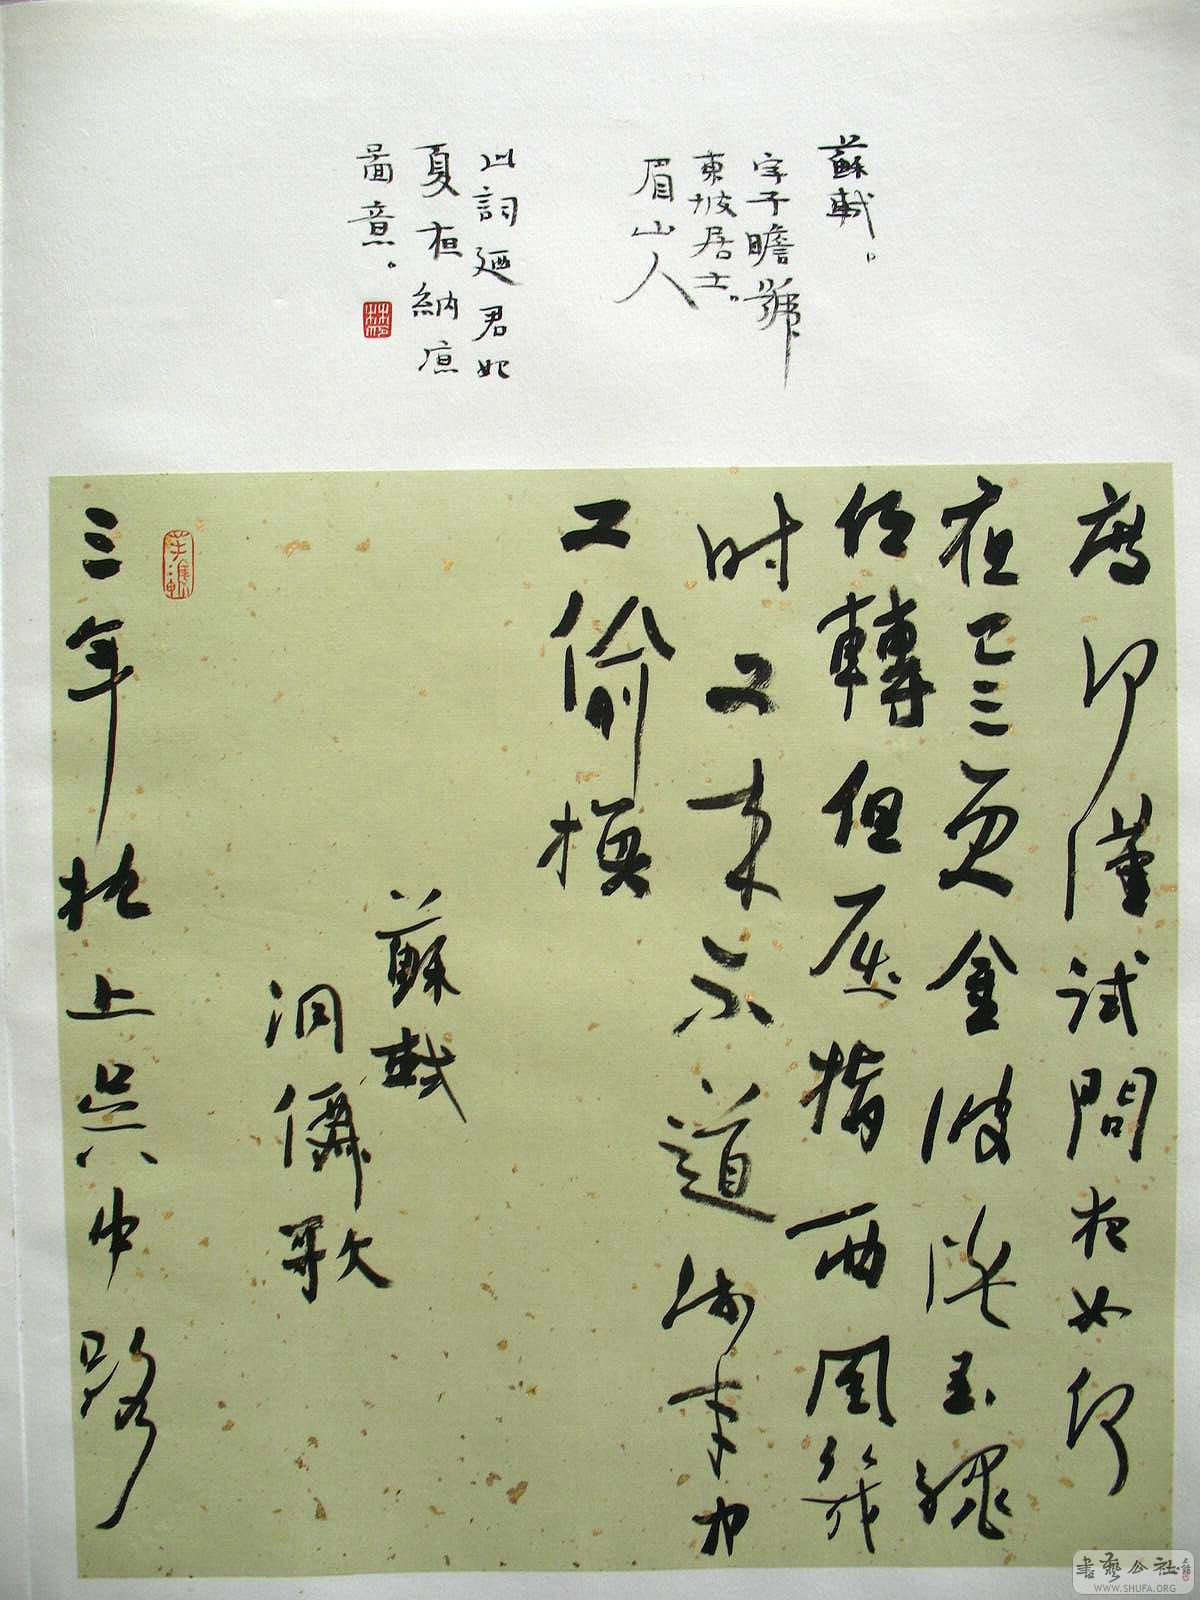 蘇軾。
字子瞻號
東坡居士。
眉山人
此詞廼君妃
夏夜納凉
圖意。
度何漢試問夜如何
夜已三更金波淡玉繩
低轉但屈指西風幾
时又来不道流年中
偷換
蘇軾
洞僊歌
三年枕上吳中路
書藝公社
WWW.SHUFA.ORG